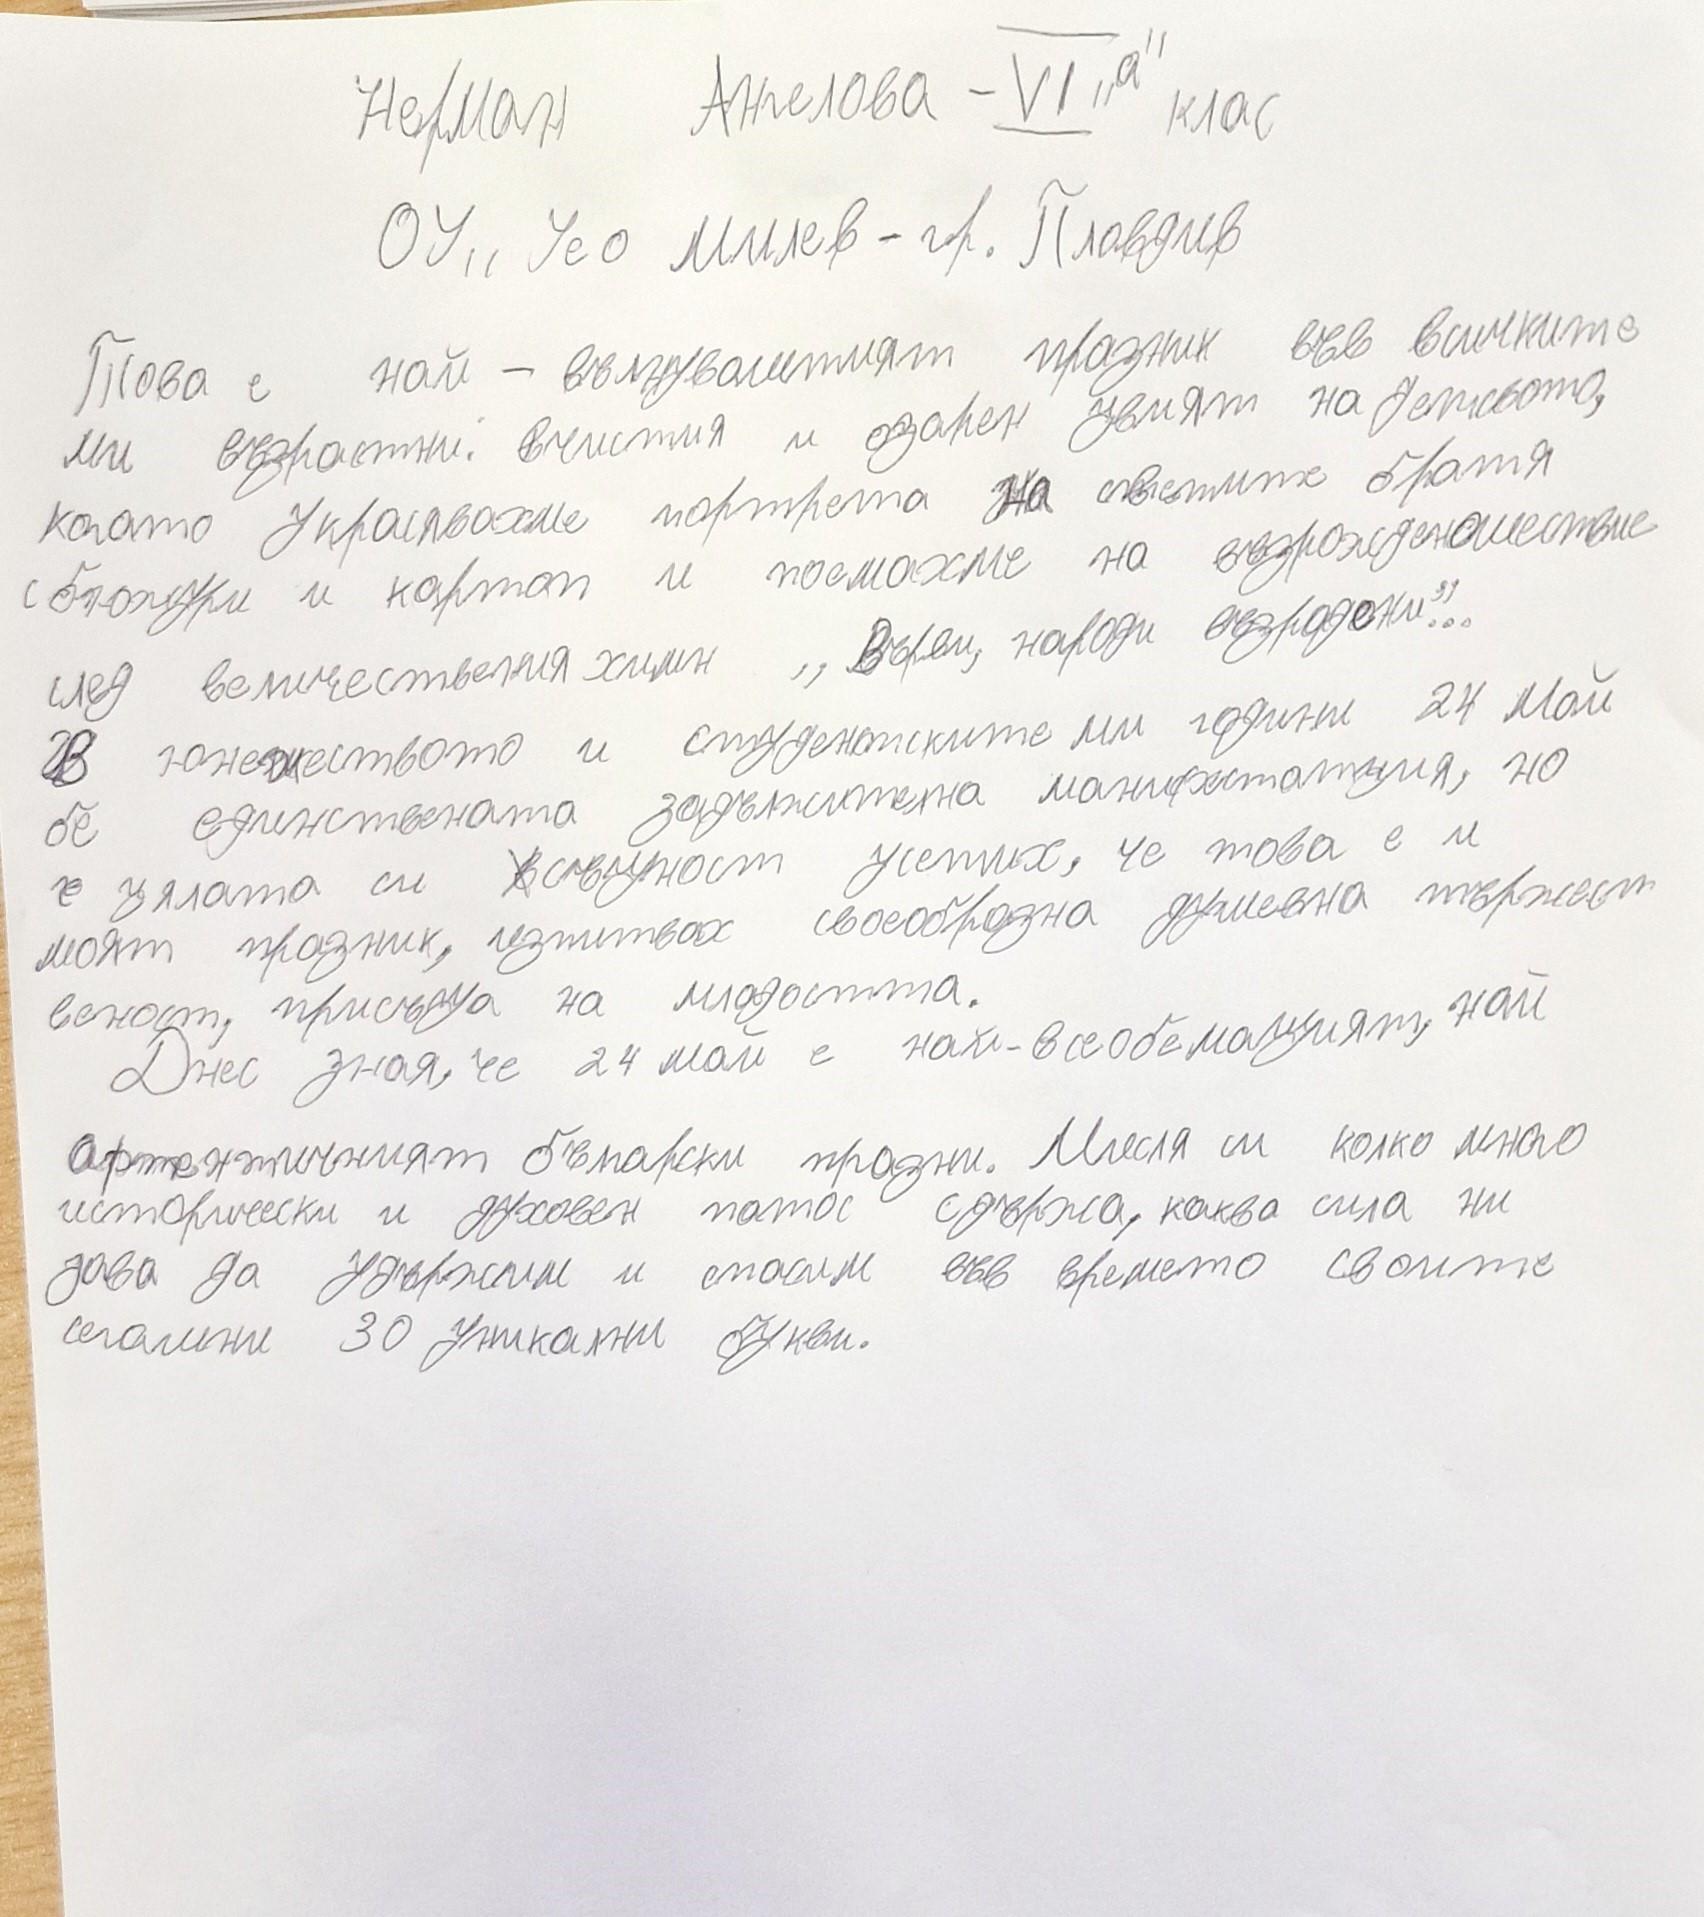 Нерман Ангелова - VI "а" клас
ОУ,, Гео Милев - гр. Пловдив
Това е най - вълнуващият празник във всичките
ми възрасти: в чистия и озарен увият на детсвото,
когато украсявахме портрета на светите братя
с божури и картон и поемахме на възрожденошествие
след величествения химн ,, Върви, народи възродени"...
В юнешеството и студентските ми години 24 май
бе единствената задължителна манифестатция, но
с цялата си всъщност усетих, че това е и
моят празник, изпитвах своеобразна душевна тържест
веност, присъща на младостта.
Днес зная, че 24 май е най-всеобемащият, най
артентичният български празни. Мисля си колко много
исторически и духовен патос съдържа, каква сила ни
дава да удържим и спасим във времето своите
сегашни 30 уникални букви.